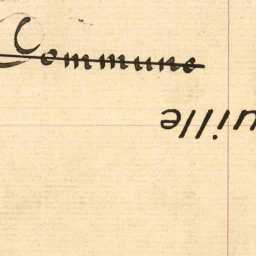 Commune
uille